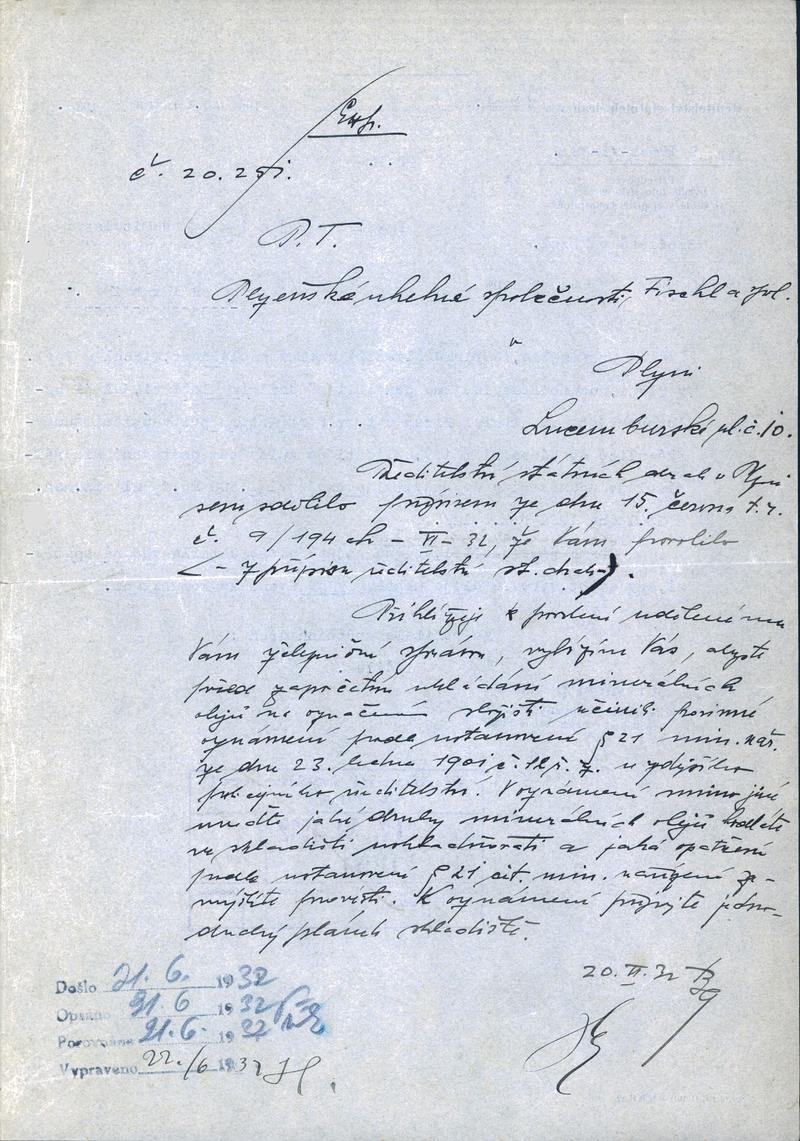 Exp.
č. 20.251.
P. T.
Plzeňské uhelné společnosti, Fischl a spol.
v
Plzni
Lucemburské nl. č. 10.
Ředitelství státních drah v Plzni
sem sdělilo přípisem ze dne 15. června t. r.
č. 9/194 ch - VI - 32, že Vám povolilo
< - z přípisu ředitelství st. drah - ).
Přihlížeje k povolení udělenému
Vám železniční správou, vybízím Vás, abyste
před započetím ukládání minerálních
olejů na označené skojišti učinili povinné
oznámení podle ustanovení § 21 min. nař.
ze dne 23. ledna 1901 č. 12 ř. z. u zdejšího
policejního ředitelství. V oznámení mimo jiné
uveďte jaké druhy minerálních olejů hodláte
ve skladišti uskladňovati a jaká opatření
podle ustanovení § 21 cit. min. nařízení za-
mýšlíte provésti. K oznámení připojte jedno-
duchý plánek skladiště.
20. VI. 32
Došlo 21. 6. 1932
Opsáno 21. 6 1932
Porovnáno 21. 6. 1932
Vypraveno 22./6 1932